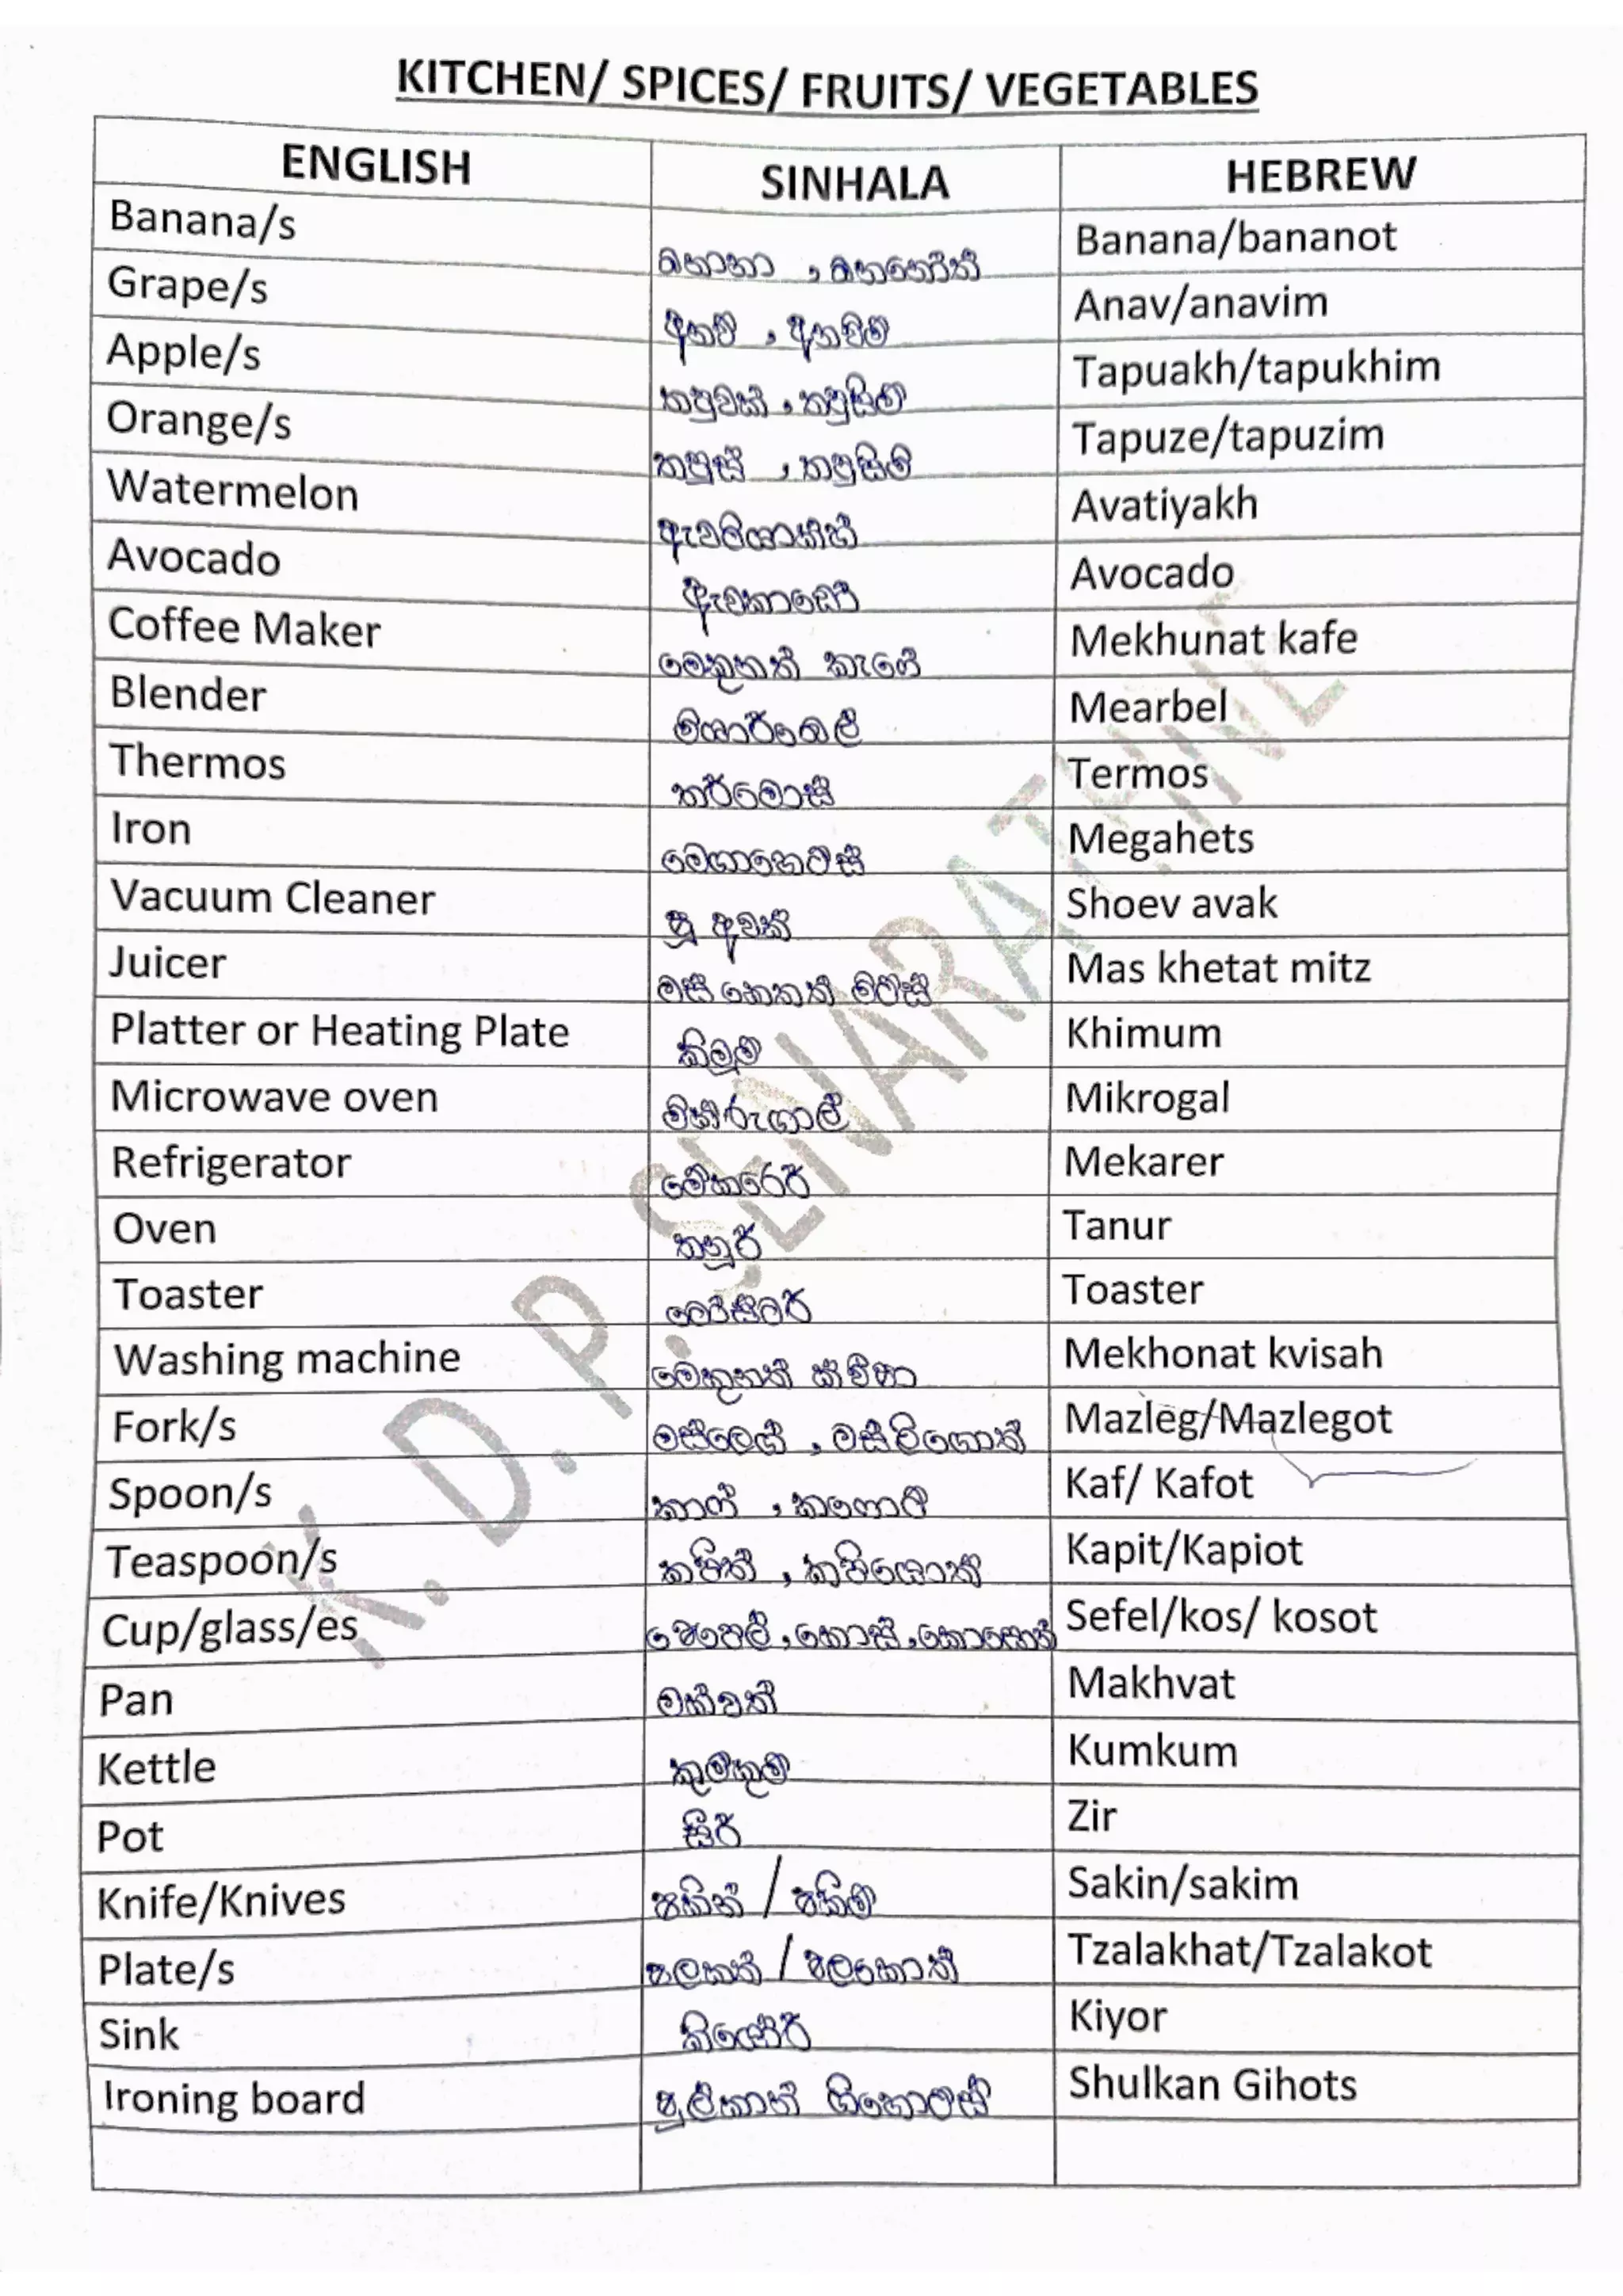 KITCHEN/ SPICES/ FRUITS/ VEGETABLES
ENGLISH SINHALA HEBREW
Banana/s බනානා , බනනෝත් Banana/bananot
Grape/s අනව් , අනවිම් Anav/anavim
Apple/s තපුවක් , තපුකිම් Tapuakh/tapukhim
Orange/s තපුස් , තපුසිම් Tapuze/tapuzim
Watermelon Avatiyakh
Avocado ඇවකාඩෝ Avocado
Coffee Maker මෙකුනත් කැෆේ Mekhunat kafe
Blender මියාර්බෙල් Mearbel
Thermos තර්මොස් Termos
Iron මෙගාහෙට්ස් Megahets
Vacuum Cleaner ෂූ අවක් Shoev avak
Juicer මස් හෙතත් මිට්ස් Mas khetat mitz
Platter or Heating Plate කිමූම් Khimum
Microwave oven මික්රුගාල් Mikrogal
Refrigerator මේකරෙර් Mekarer
Oven තනූර් Tanur
Toaster ටෝස්ටර් Toaster
Washing machine මෙකුනත් ක්වීෂා Mekhonat kvisah
Fork/s මස්ලෙග් , මස්ලිගොත් Mazleg/Mazlegot
Spoon/s කාෆ් , කෆොත් Kaf/ Kafot
Teaspoon/s කපිත් , කපියොත් Kapit/Kapiot
Cup/glass/es සෙපෙල් , කොස් , කොසොත් Sefel/kos/ kosot
Pan මක්වත් Makhvat
Kettle කුම්කුම් Kumkum
Pot සීර් Zir
Knife/Knives සකින් / සකිම් Sakin/sakim
Plate/s සලකත් / සලකොත් Tzalakhat/Tzalakot
Sink කියෝර් Kiyor
Ironing board ෂුල්කාන් ගිහොට්ස් Shulkan Gihots
K. D. P. SENARATHNE